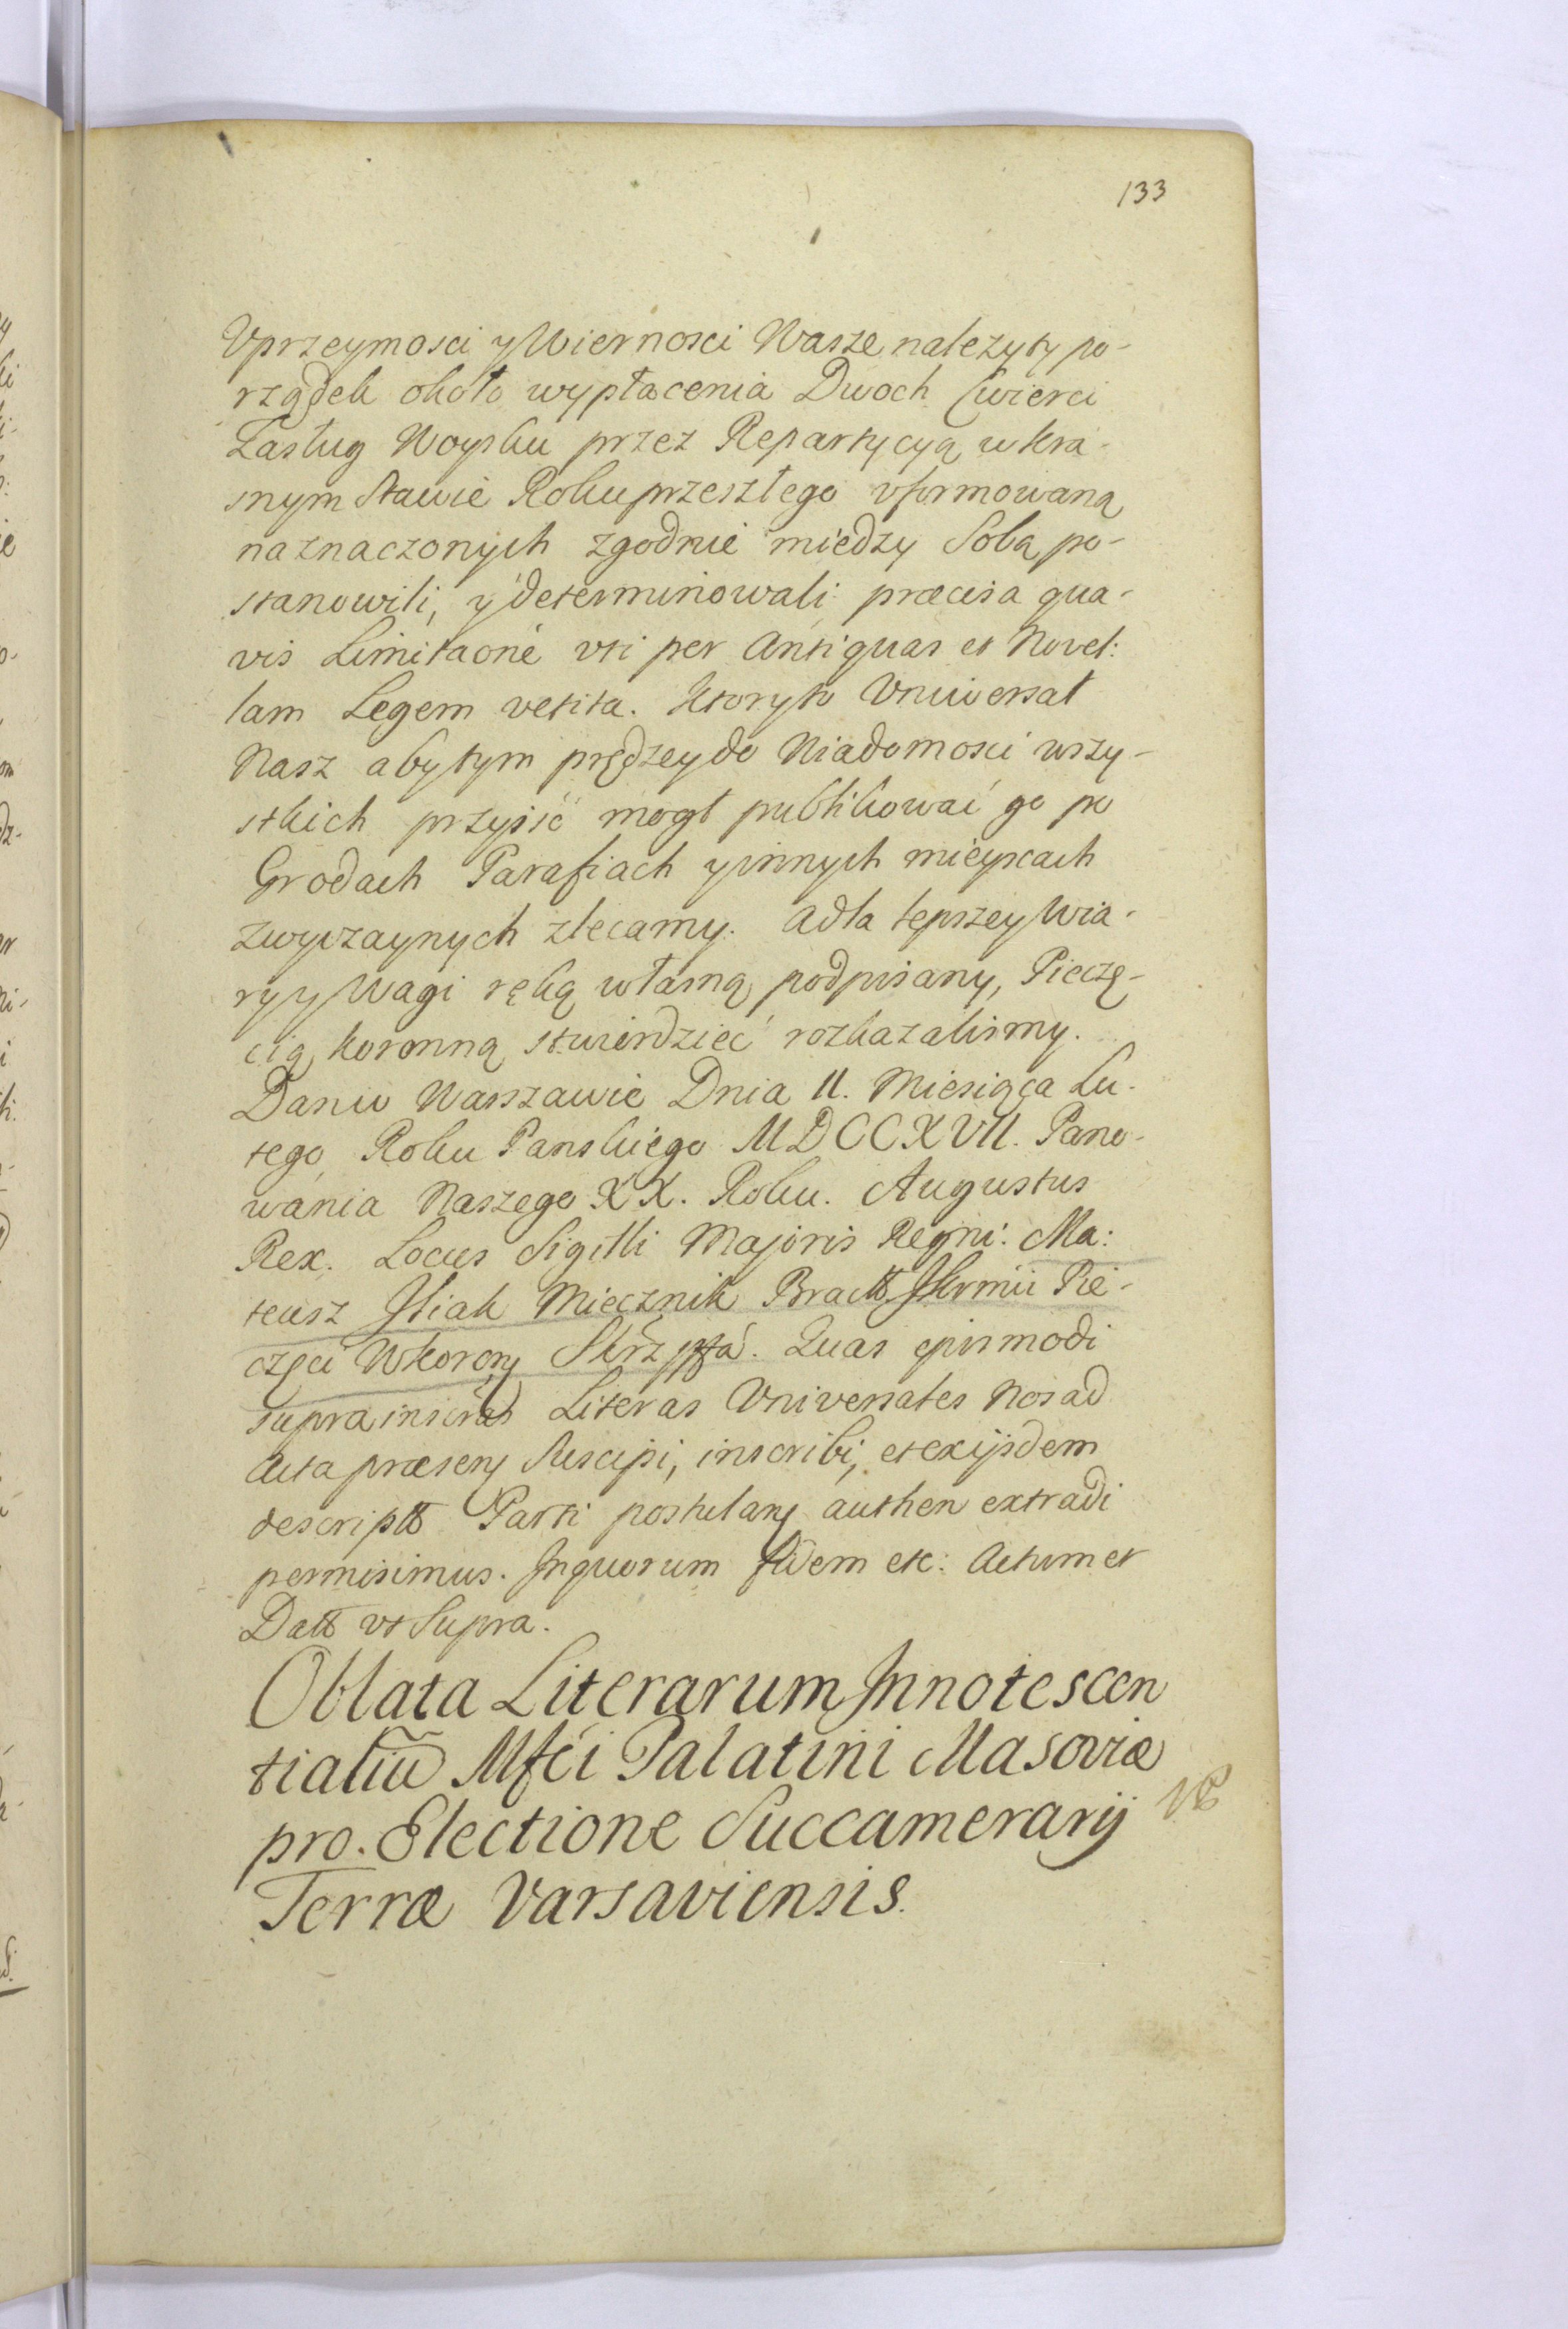 133
Vprzeymosci y Wiernosci Wasze nalezyty po-
rządek około wypłacenia Dwoch Cwierci
Zasług Woysku przez Repartycyą w Kra-
snym stawie Roku przeszłego vformowaną
naznaczonych zgodnie między Sobą po-
stanowili, y determinowali præcisa qua-
vis Limitaone vti per Antiquas et Novel:
lam Legem vetita. Ktoryto Vniwersał
Nasz aby tym prędzey do Wiadomosci wszy-
stkich przyiść mogł publikować go po
Grodach Parafiach y innych mieyscach
zwyczaynych zlecamy. A dla lepszey Wia-
ry y Wagi ręką własną podpisany, Pieczę-
cią Koronną stwierdzieć rozkazalismy.
Dan w Warszawie Dnia 11. Miesiąca Lu-
tego Roku Panskiego MDCCXVII. Pano-
wania Naszego XX. Roku. Augustus
Rex. Locus Sigilli Majoris Regni: Ma:
teusz Miecznik Pie-
częci
supra Literas Vniversales Nos ad
Acta præsens Suscipi, inscribi, et exijsdem
descriptt Parti postulans authen extradi
permisimus. In quorum fidem etc: Actum et
Datt vt Supra.
Oblata Literarum Innotescen
tialiũ Mfci Palatini Masoviæ
pro Electione Succamerarij
Terræ Varsaviensis.